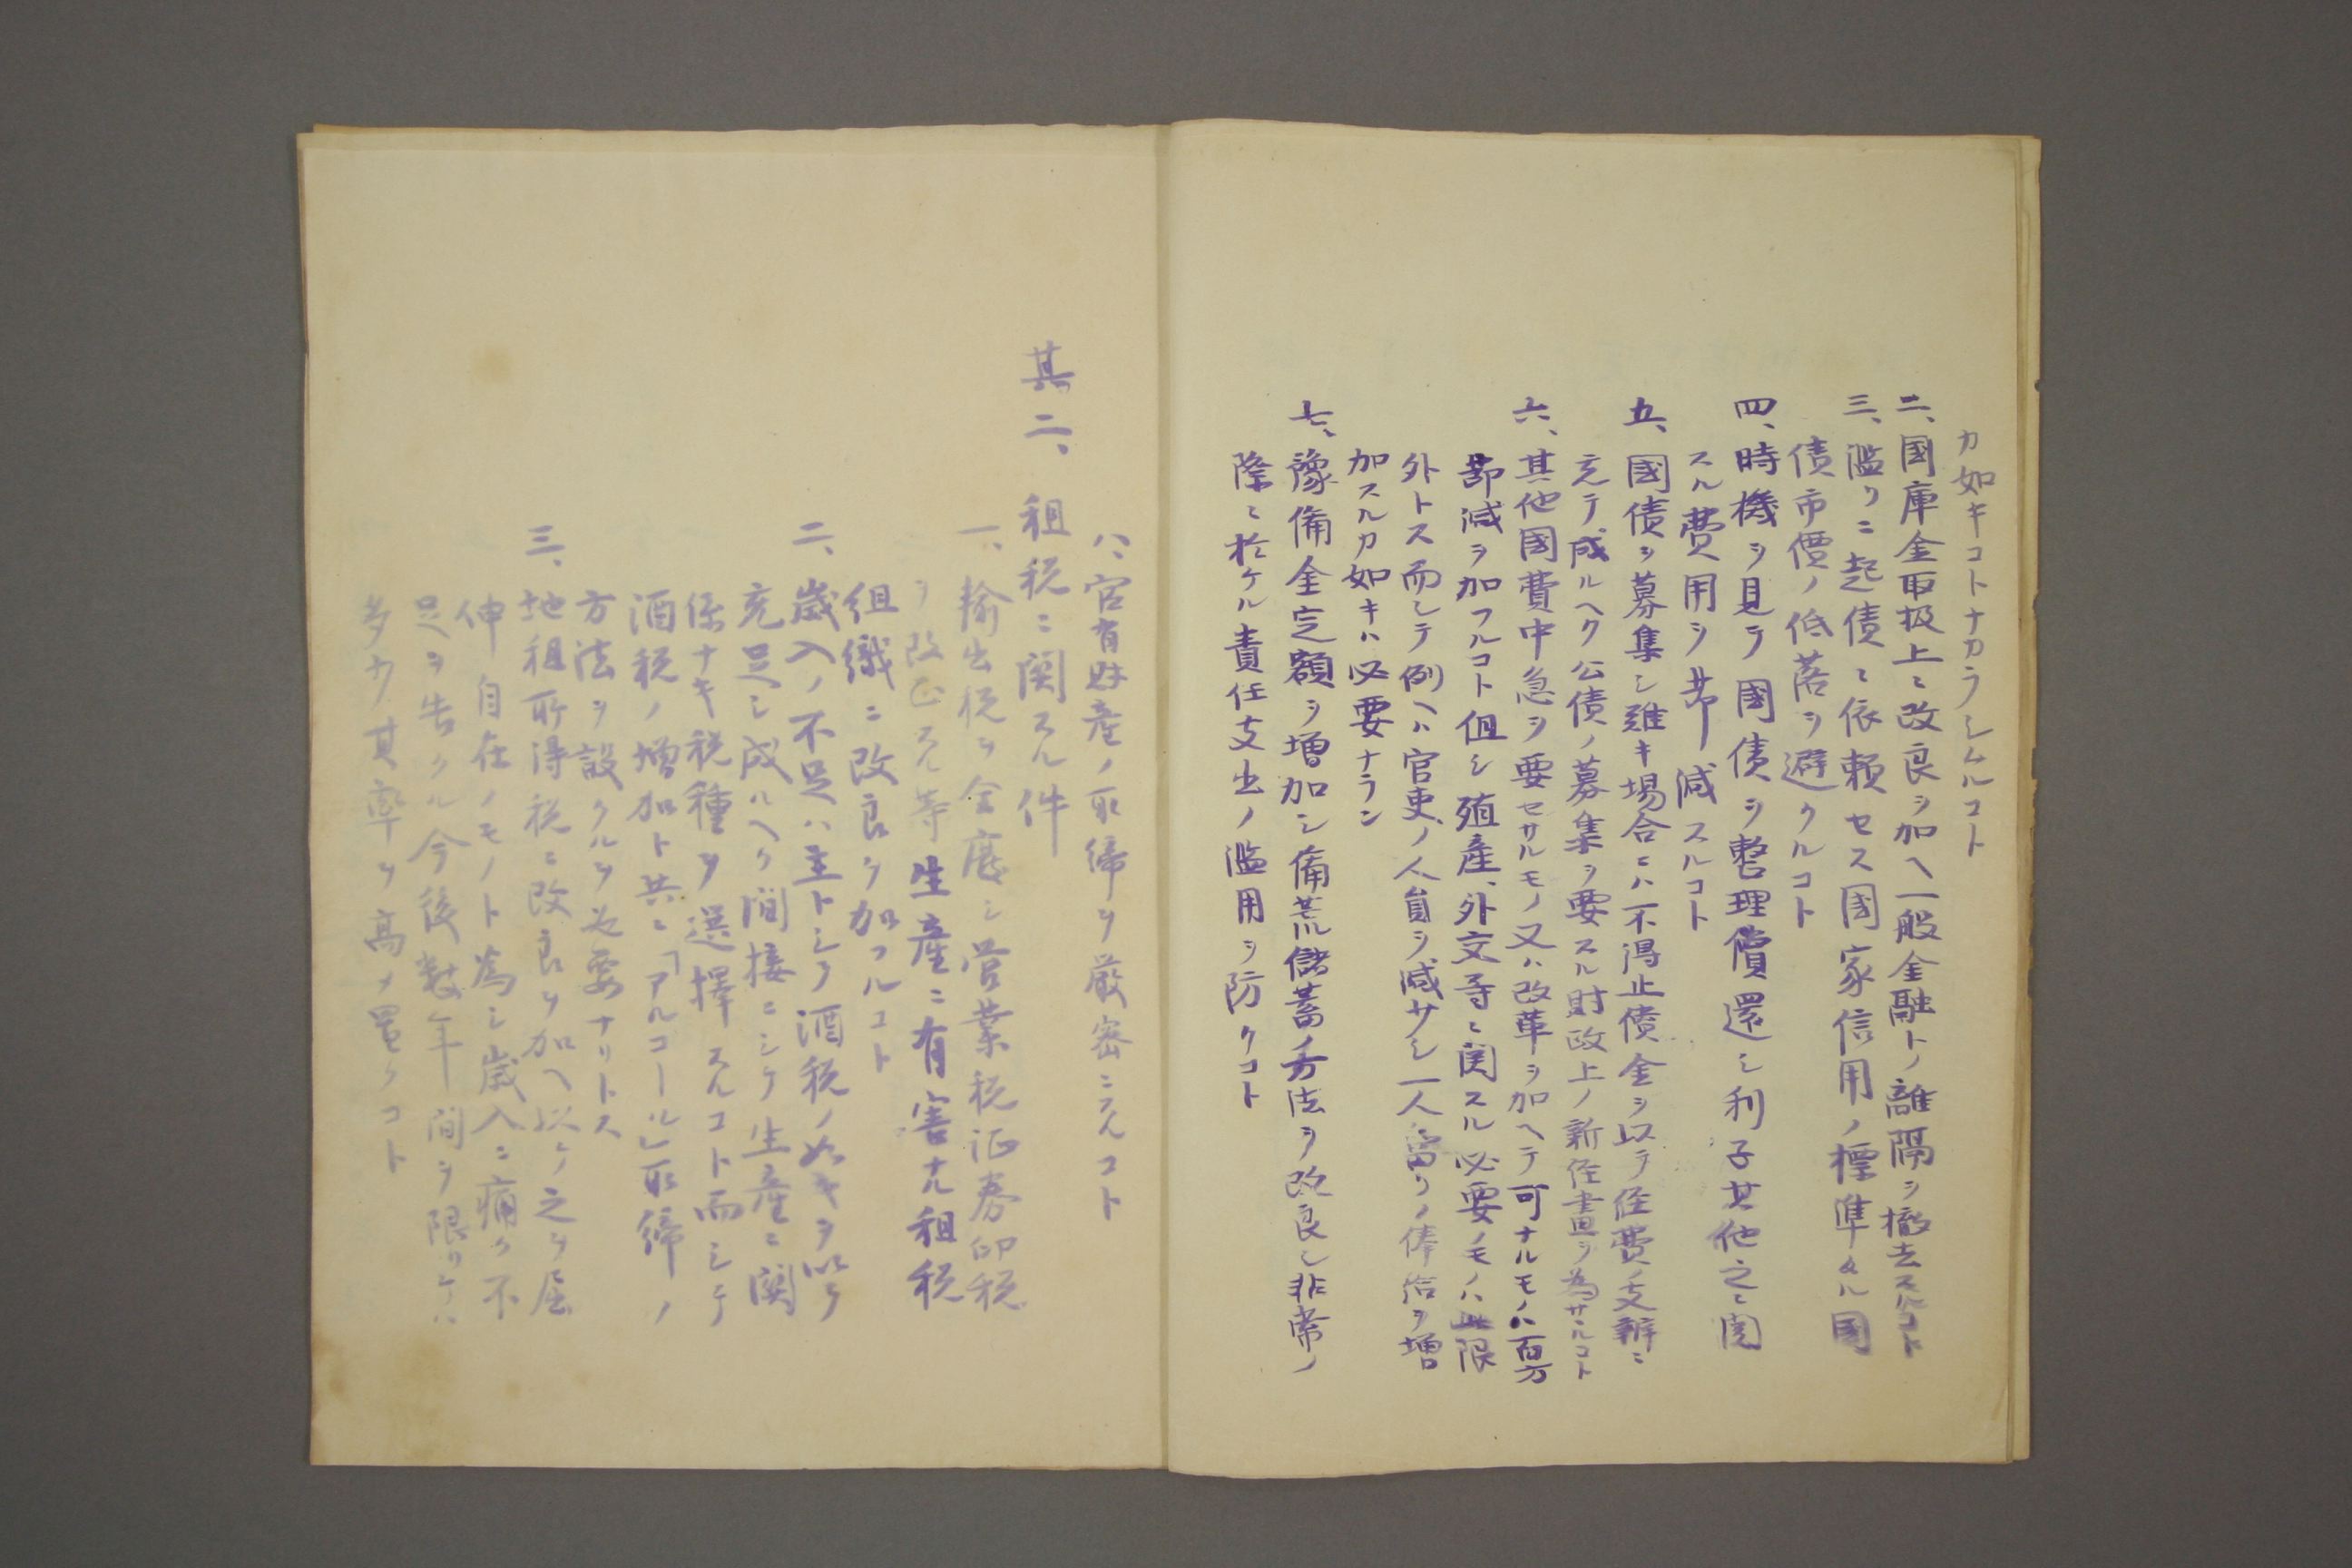 カ如キコトナカラシムルコト
二、國庫金取扱上ニ改良ヲ加ヘ一般金融トノ離隔ヲ撤去スルコト
三、濫リニ起債ニ依頼セス國家信用ノ標準タル國
債市價ノ低落ヲ避クルコト
四、時機ヲ見テ國債ヲ整理償還シ利子其他之ニ関
スル費用ヲ節減スルコト
五、國債ヲ募集シ難キ場合ニハ不得止債金ヲ以テ経費ノ支辨ニ
充テ成ルヘク公債ノ募集ヲ要スル財政上ノ新経畫ヲ為サヽルコト
六、其他國費中急ヲ要セサルモノ又ハ改革ヲ加ヘテ可ナルモノハ百方
節減ヲ加フルコト但シ殖産、外交等ニ関スル必要ノモノハ此限
外トス而シテ例ヘハ官吏ノ人員ヲ減サシ一人当リノ俸給ヲ増
加スルカ如キハ必要ナラン
七、豫備金定額ヲ増加シ備荒儲蓄ノ方法ヲ改良シ非常ノ
際ニ於ケル責任支出ノ濫用ヲ防クコト
八、官有財産ノ取締ヲ厳密ニスルコト
其二、租税ニ関スル件
一、輸出税ヲ全廃シ営業税証券印税
ヲ改正スル等生産ニ有害ナル租税
組織ニ改良ヲ加フルコト
二、歳入ノ不足ハ主トシテ酒税ノ如キヲ以テ
充足シ成ルヘク間接ニシテ生産ニ関
係ナキ税種ヲ選擇スルコト而シテ
酒税ノ増加ト共ニ「アルコール」取締ノ
方法ヲ設クルヲ必要ナリトス
三、地租所得税ニ改良ヲ加ヘ以テ之ヲ屈
伸自在ノモノト為シ歳入ニ痛ク不
足ヲ告クル今後数年間ヲ限リテハ
多少其率ヲ高メ置クコト